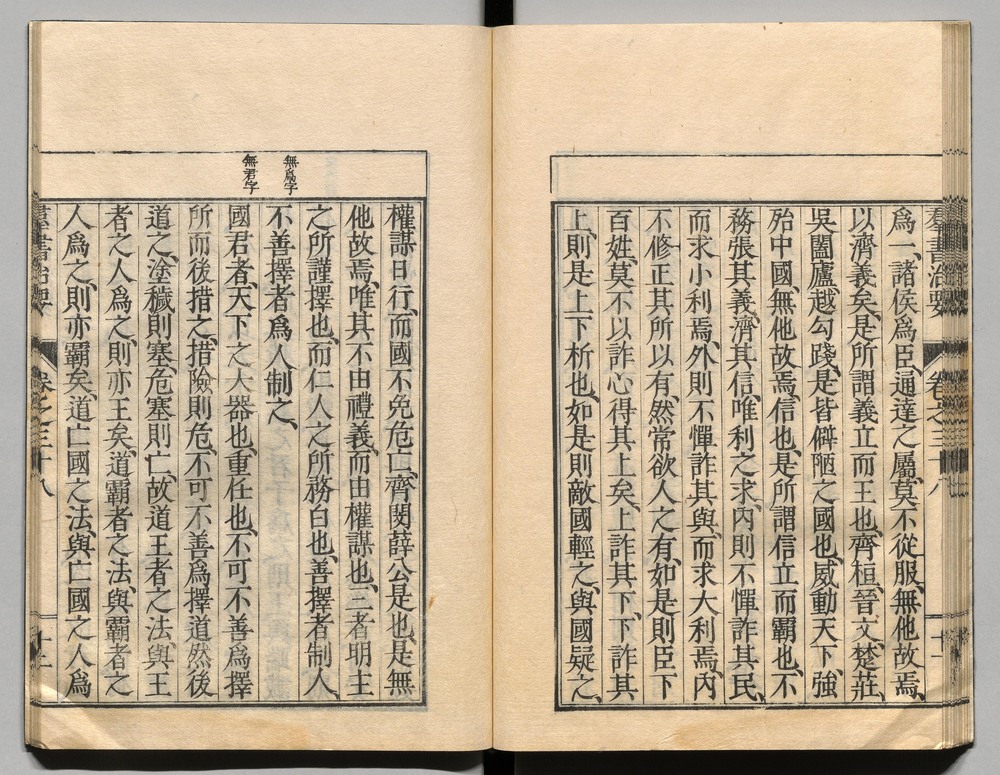 爲一、諸侯爲臣、通達之屬、莫不從服、無他故焉、
以濟義矣、是所謂義立而王也、齊桓、晉文、楚莊、
吳闔廬、越勾踐、是皆僻陋之國也、威動天下、強
殆中國、無他故焉、信也、是所謂信立而霸也、不
務張其義、濟其信、唯利之求、內則不憚詐其民、
而求小利焉、外則不憚詐其與、而求大利焉、內
不修正其所以有、然常欲人之有、如是則臣下
百姓、莫不以詐心得其上矣、上詐其下、下詐其
上、則是上下析也、如是則敵國輕之、與國疑之、
羣書治要
卷之三十八
十一
無爲字
無君字
權謀日行、而國不免危亡、齊閔薛公是也、是無
他故焉、唯其不由禮義、而由權謀也、三者明主
之所謹擇也、而仁人之所務白也、善擇者制人、
不善擇者爲人制之、
國君者、天下之大器也、重任也、不可不善爲擇
所而後措之、措險則危、不可不善爲擇道然後
道之、塗穢則塞、危塞則亡、故道王者之法、與王
者之人爲之、則亦王矣、道霸者之法、與霸者之
人爲之、則亦霸矣、道亡國之法、與亡國之人爲
羣書治要
卷之三十八
十二